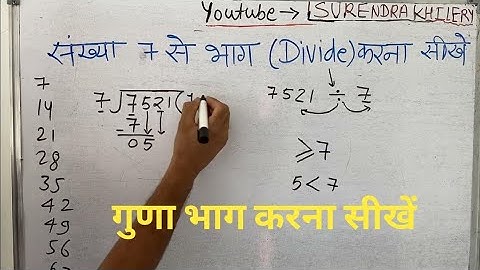 Youtube → SURENDRA KHILERY
संख्या 7 से भाग (Divide) करना सीखे
7
14
21
28
35
42
49
56
7√7521(1
-7
05
7521 ÷ 7
≥7
5<7
गुणा भाग करना सीखें